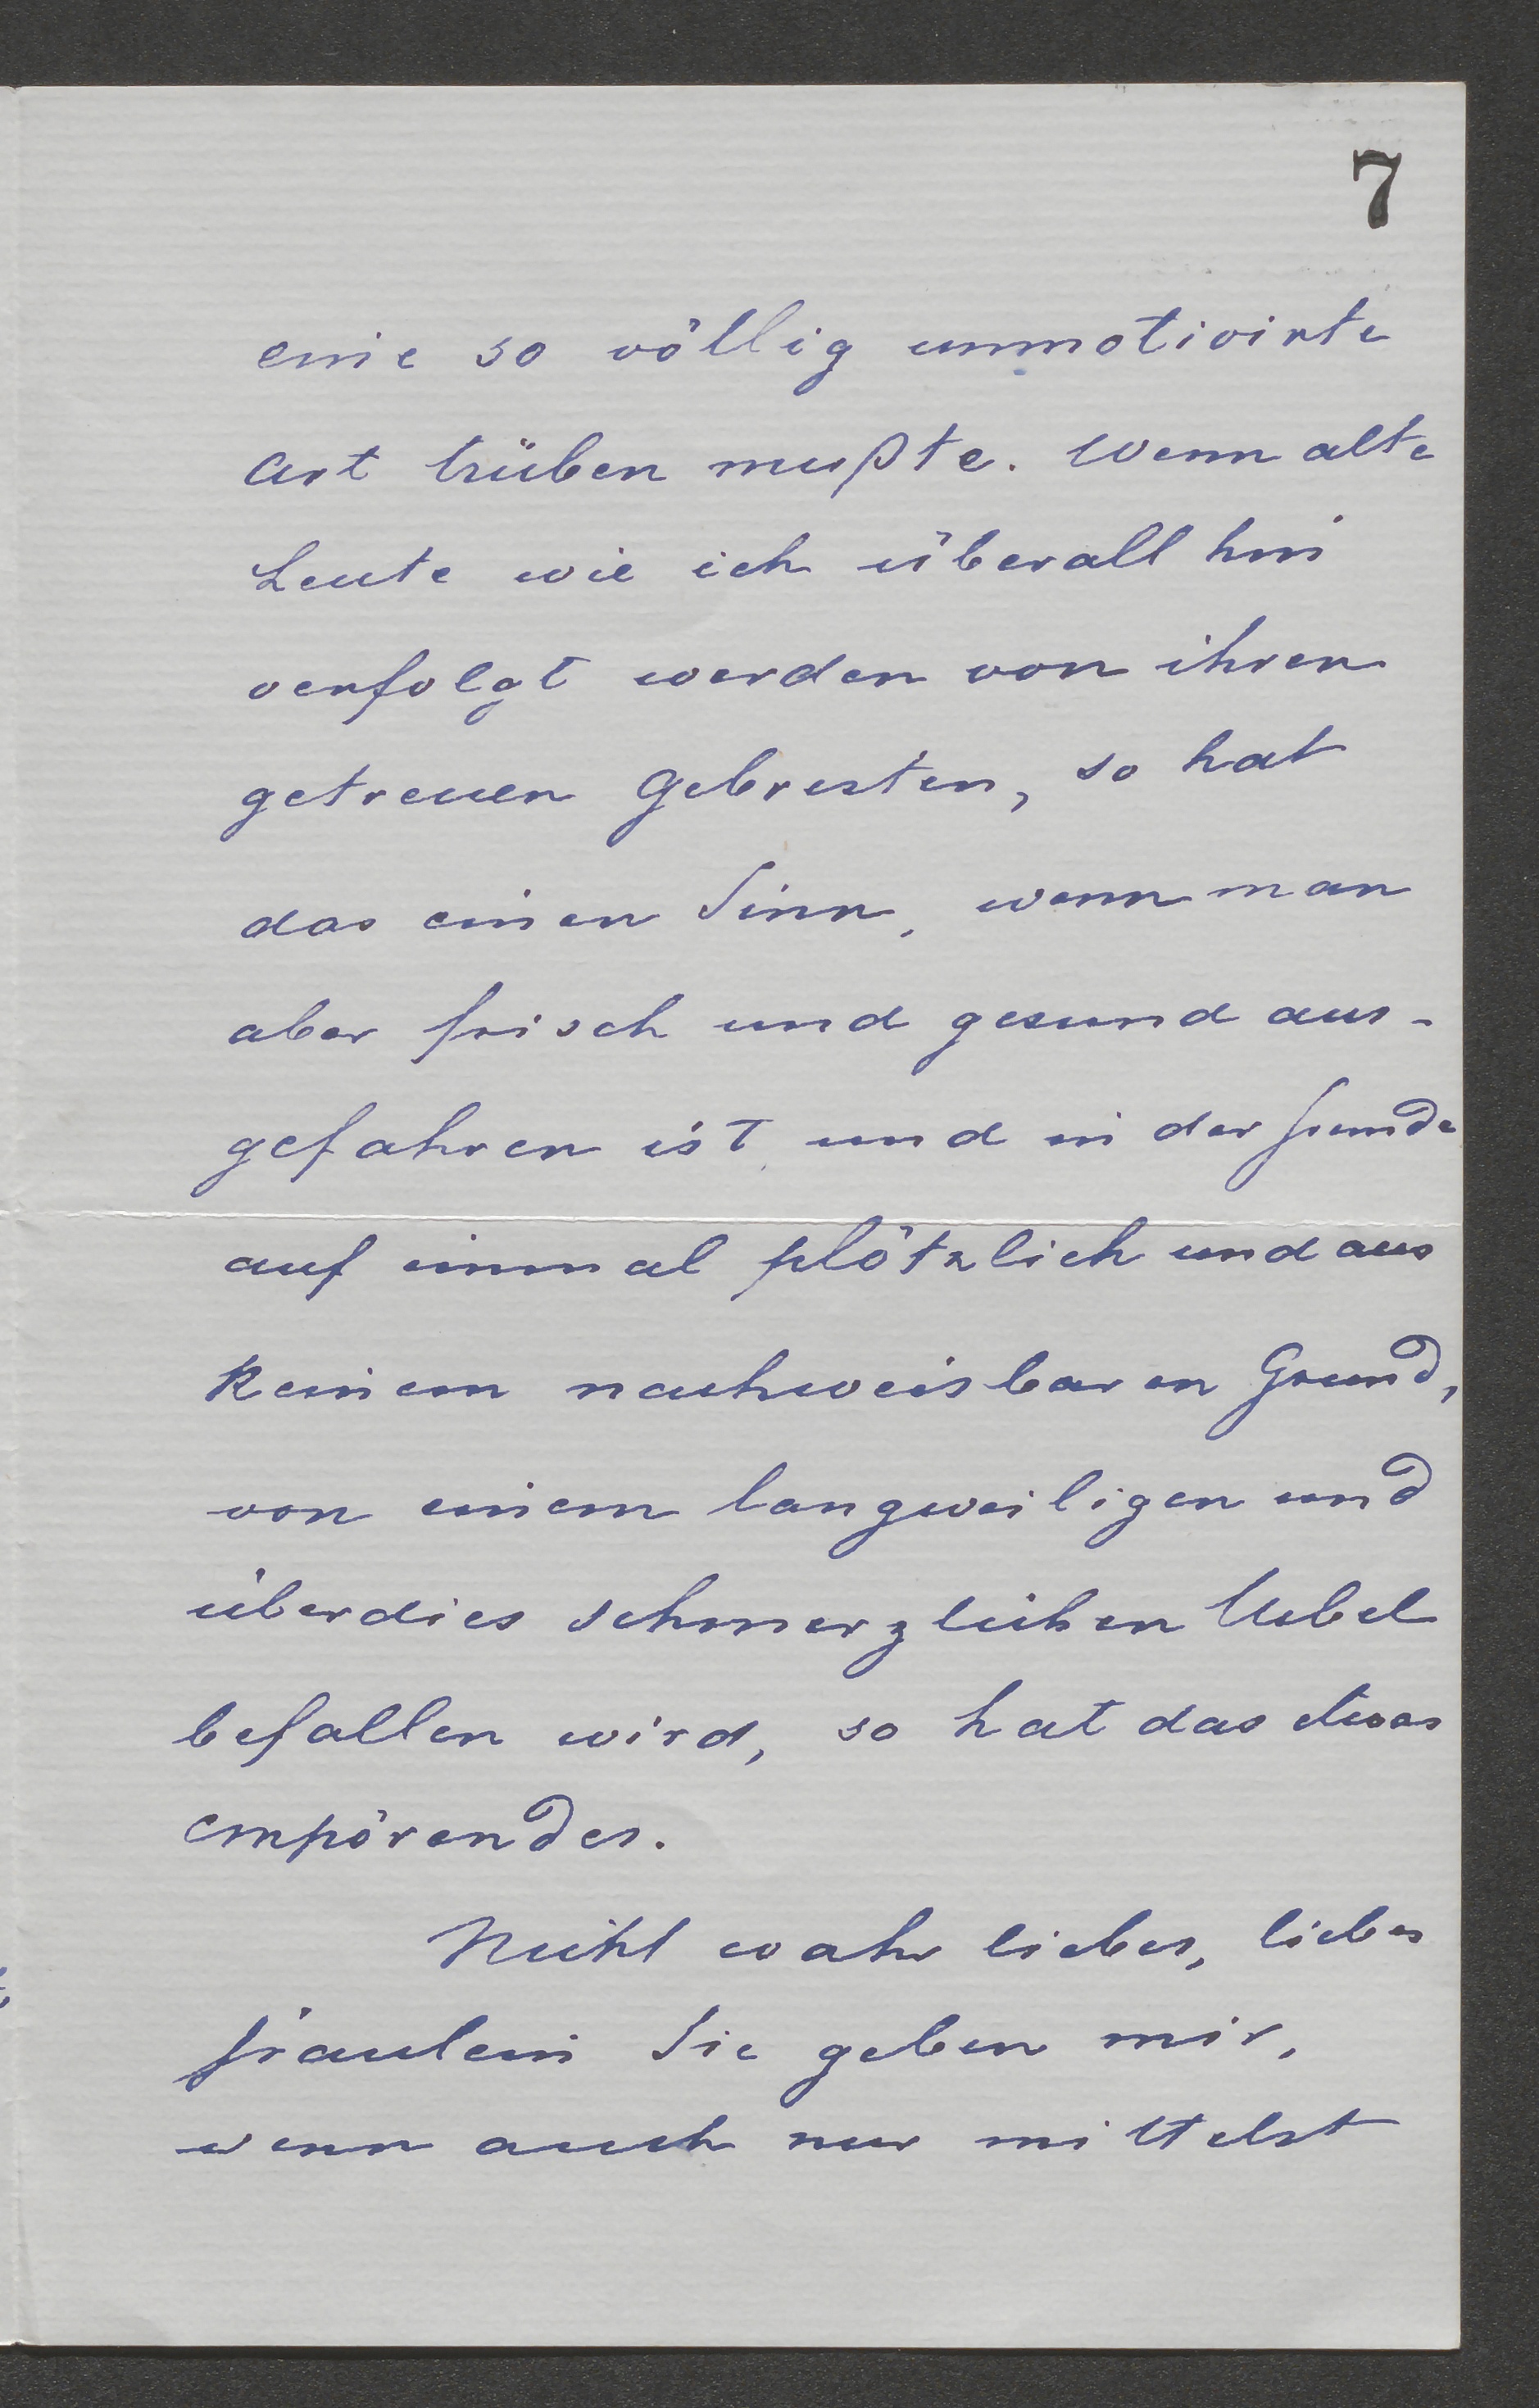 7
eine so völlig unmotivirte
Art trüben mußte. Wenn alte
Leute wie ich überall hin
verfolgt werden von ihren
getreuen Gebresten, so hat
das einen Sinn, wenn man
aber frisch und gesund aus-
gefahren ist und in der Fremde
auf einmal plötzlich und aus
keinem nachweisbaren Grund,
von einem langweiligen und
überdies schmerzlichen Uebel
befallen wird, so hat das etwas
empörendes.
Nicht wahr liebes, liebes
Fräulein Sie geben mir,
wenn auch nur mittelst